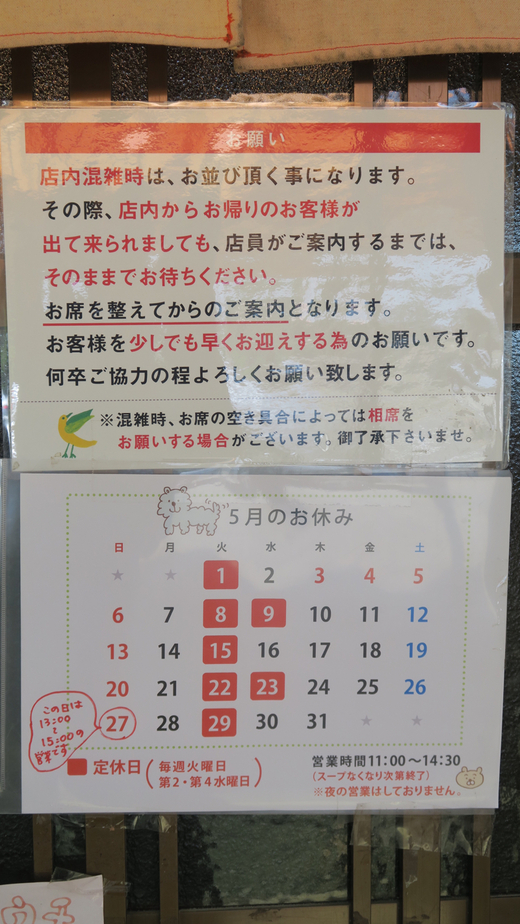 お願い
店内混雑時は、お並び頂く事になります。
その際、店内からお帰りのお客様が
出て来られましても、店員がご案内するまでは、
そのままでお待ちください。
お席を整えてからのご案内となります。
お客様を少しでも早くお迎えする為のお願いです。
何卒ご協力の程よろしくお願い致します。
※混雑時、お席の空き具合によっては相席を
お願いする場合がございます。御了承下さいませ。
5月のお休み
日 月 火 水 木 金 土
★ ★ 1 2 3 4 5
6 7 8 9 10 11 12
13 14 15 16 17 18 19
20 21 22 23 24 25 26
27 28 29 30 31 ★ ★
この日は
13:00
〜
15:00の
営業です
定休日(毎週火曜日
第2・第4水曜日)
営業時間11:00〜14:30
(スープなくなり次第終了)
※夜の営業はしておりません。